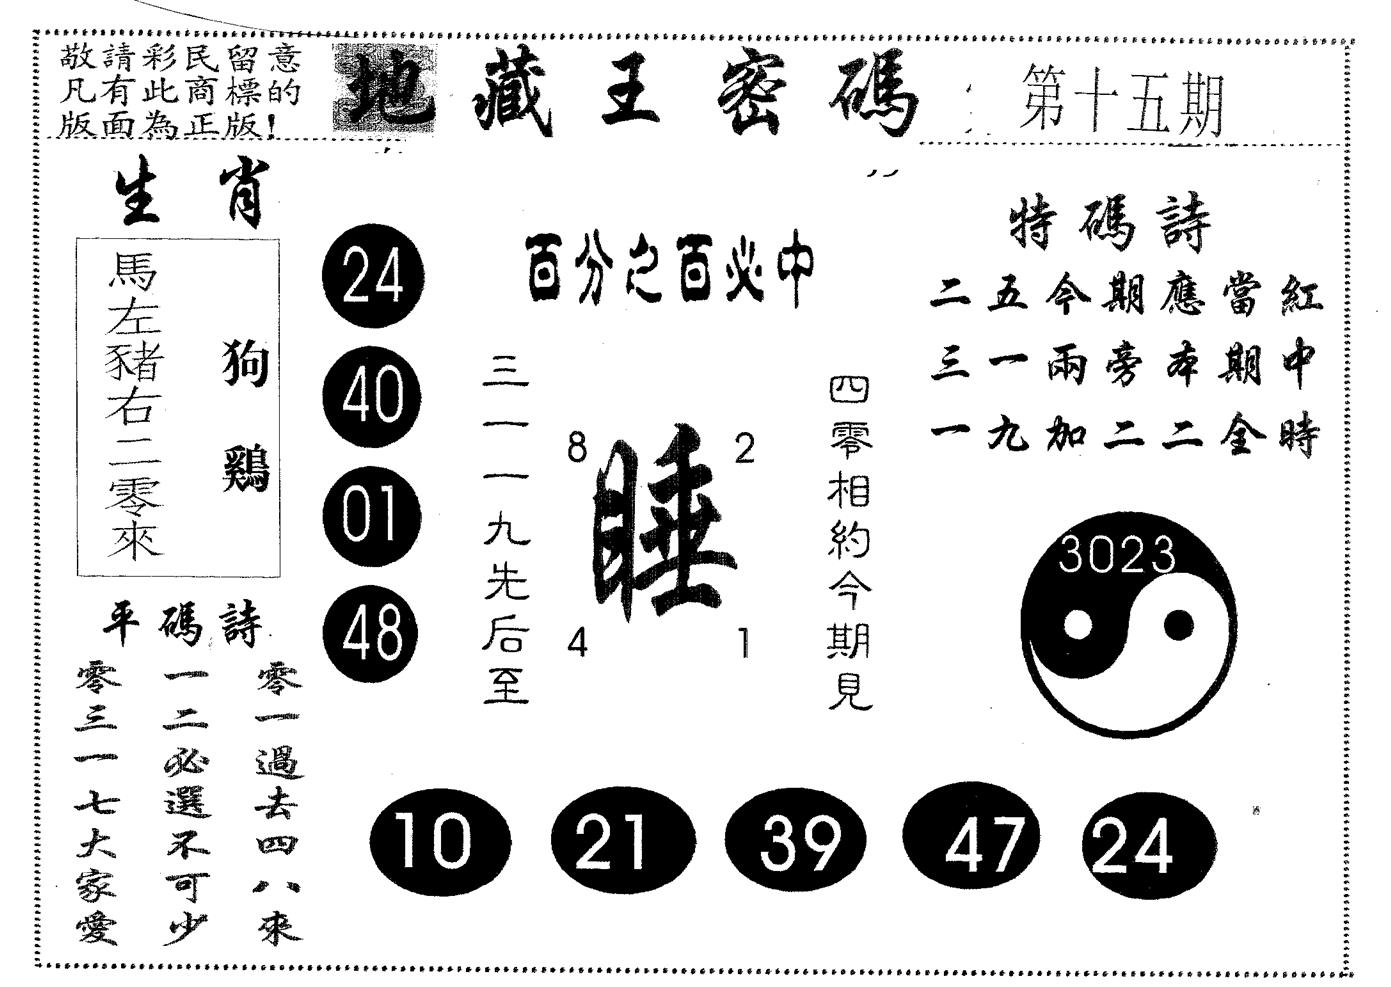 敬請彩民留意
凡有此商標的
版面為正版!
地藏王密碼
第十五期
生肖
馬左豬右二零來
狗鷄
24
40
01
48
百分之百必中
三一一九先后至
8 2
睡
4 1
四零相約今期見
特碼詩
二五今期應當紅
三一兩旁本期中
一九加二二全時
3023
平碼詩
零一過去四八來
一二必選不可少
零三一七大家愛
10 21 39 47 24